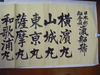 横濱丸
山城丸
東京丸
薩摩丸
和歌浦丸